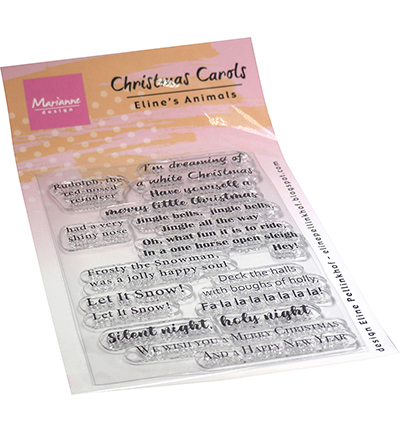 Marianne
design
Christmas Carols
Eline's Animals
Rudolph, the
red nosed
reindeer
had a very
shiny nose
I'm dreaming of
a white Christmas
Have yourself a
merry little Christmas
Jingle bells, Jingle bells,
Jingle all the way
Oh, what fun it is to ride,
In a one horse open sleigh
Hey!
Frosty the Snowman
was a jolly happy soul
Let It Snow!
Let It Snow!
Deck the halls
with boughs of holly,
Fa la la la la la la la!
Silent night, holy night
We wish you a Merry Christmas
And a Happy New Year
design Eline Pellinkhof - elinepellinkhof.blogspot.com